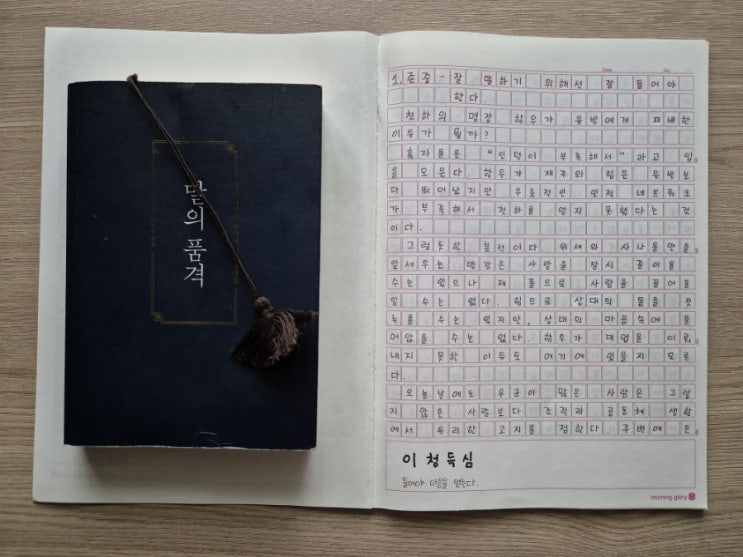 말의 품격
Date. No.
1. 존중 - 잘 말하기 위해선 잘 들어야
한다.
천하의 명장 항우가 유방에게 패배한
이유가 뭘까?
혹자들은 "인덕이 부족해서" 라고 입
을 모은다. 항우가 재주와 힘은 유방보
다 뛰어났지만 우호적인 인적 네트워크
가 부족해서 천하를 얻지 못했다는 것
이다.
그럴듯한 분석이다. 위세와 사나움만을
앞세우는 맹장은 사람을 잠시 끌어올
수는 있으나 제 품으로 사람을 끌어들
일 수는 없다. 힘으로 상대의 몸을 짓
누를 수는 있지만, 상대의 마음속에 들
어앉을 수는 없다. 항우가 대업을 이뤄
내지 못한 이유도 여기에 있을지 모른
다.
오늘날에도 우군이 많은 사람은 그렇
지 않은 사람보다 조직과 공동체 생활
에서 유리한 고지를 점한다. 주변에 든
이청득심
들어야 마음을 얻는다.
morning glory